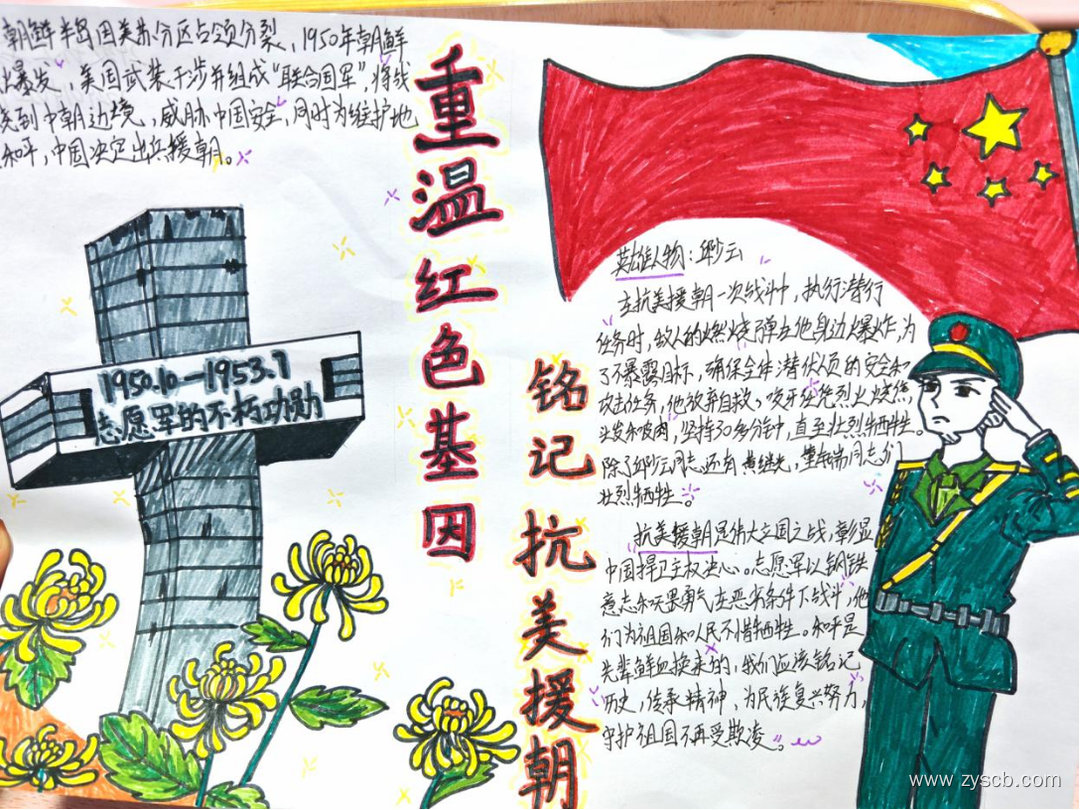 朝鲜半岛因美苏分区占领分裂,1950年朝鲜
暴发,美国武装干涉并组成“联合国军”,将战
烧到中朝边境,威胁中国安全,同时为维护地
和平,中国决定出兵援朝。
重温红色基因
铭记抗美援朝
1950.10—1953.7
志愿军的不朽功勋
英雄人物:邱少云
在抗美援朝一次战斗中,执行潜行
任务时,敌人的燃烧弹在他身边爆炸,为
了不暴露目标,确保全体潜伏人员的安全和
攻击任务,他放弃自救,咬牙任凭烈火烧焦
头发和皮肉,坚持30多分钟,直至壮烈牺牲。
除了邱少云同志还有黄继光,同志们
壮烈牺牲。
抗美援朝是伟大立国之战,彰显
中国捍卫主权决心。志愿军以钢铁
意志和大无畏勇气在恶劣条件下战斗,他
们为祖国和人民不惜牺牲。和平是
先辈鲜血换来的,我们应该铭记
历史,传承精神,为民族复兴努力,
守护祖国不再受欺凌。
www.zyscb.com